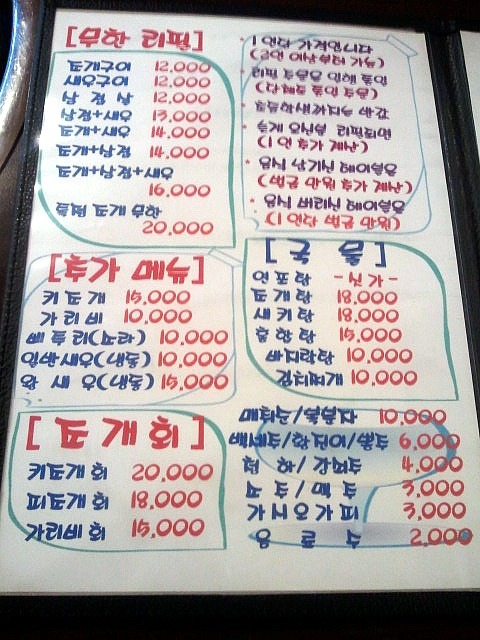 [무한 리필]
조개구이 12,000
새우구이 12,000
삼겹살 12,000
삼겹+새우 13,000
조개+새우 14,000
조개+삼겹 14,000
조개+삼겹+새우
16,000
특선 조개 무한
20,000
* 1인당 가격입니다
(2인 이상부터 가능)
* 리필 주문은 인원 통일
(단체로 통일 주문)
* 초등학생까지는 반값
* 늦게 오신분 리필되면
(1인 추가 계산)
* 음식 남기신 테이블은
(벌금 만원 추가 계산)
* 음식 버리신 테이블은
(1인당 벌금 만원)
[추가 메뉴]
키조개 15,000
가리비 10,000
삐뚤이(소라) 10,000
일반새우(생물) 10,000
왕새우(생물) 15,000
[국물]
연포탕 -싯가-
조개탕 18,000
새키탕 18,000
홍합탕 15,000
바지락탕 10,000
김치찌개 10,000
[조개회]
키조개회 20,000
피조개회 18,000
가리비회 15,000
매취순/복분자 10,000
백세주/산사춘 6,000
청하/ 4,000
소주/맥주 3,000
가시오가피 3,000
음료수 2,000